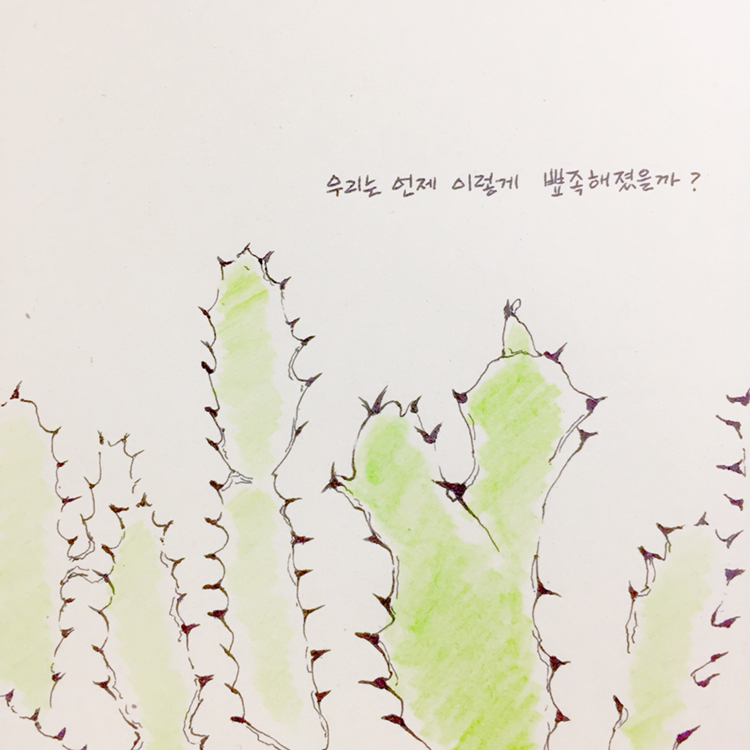 우리는 언제 이렇게 뾰족해졌을까?